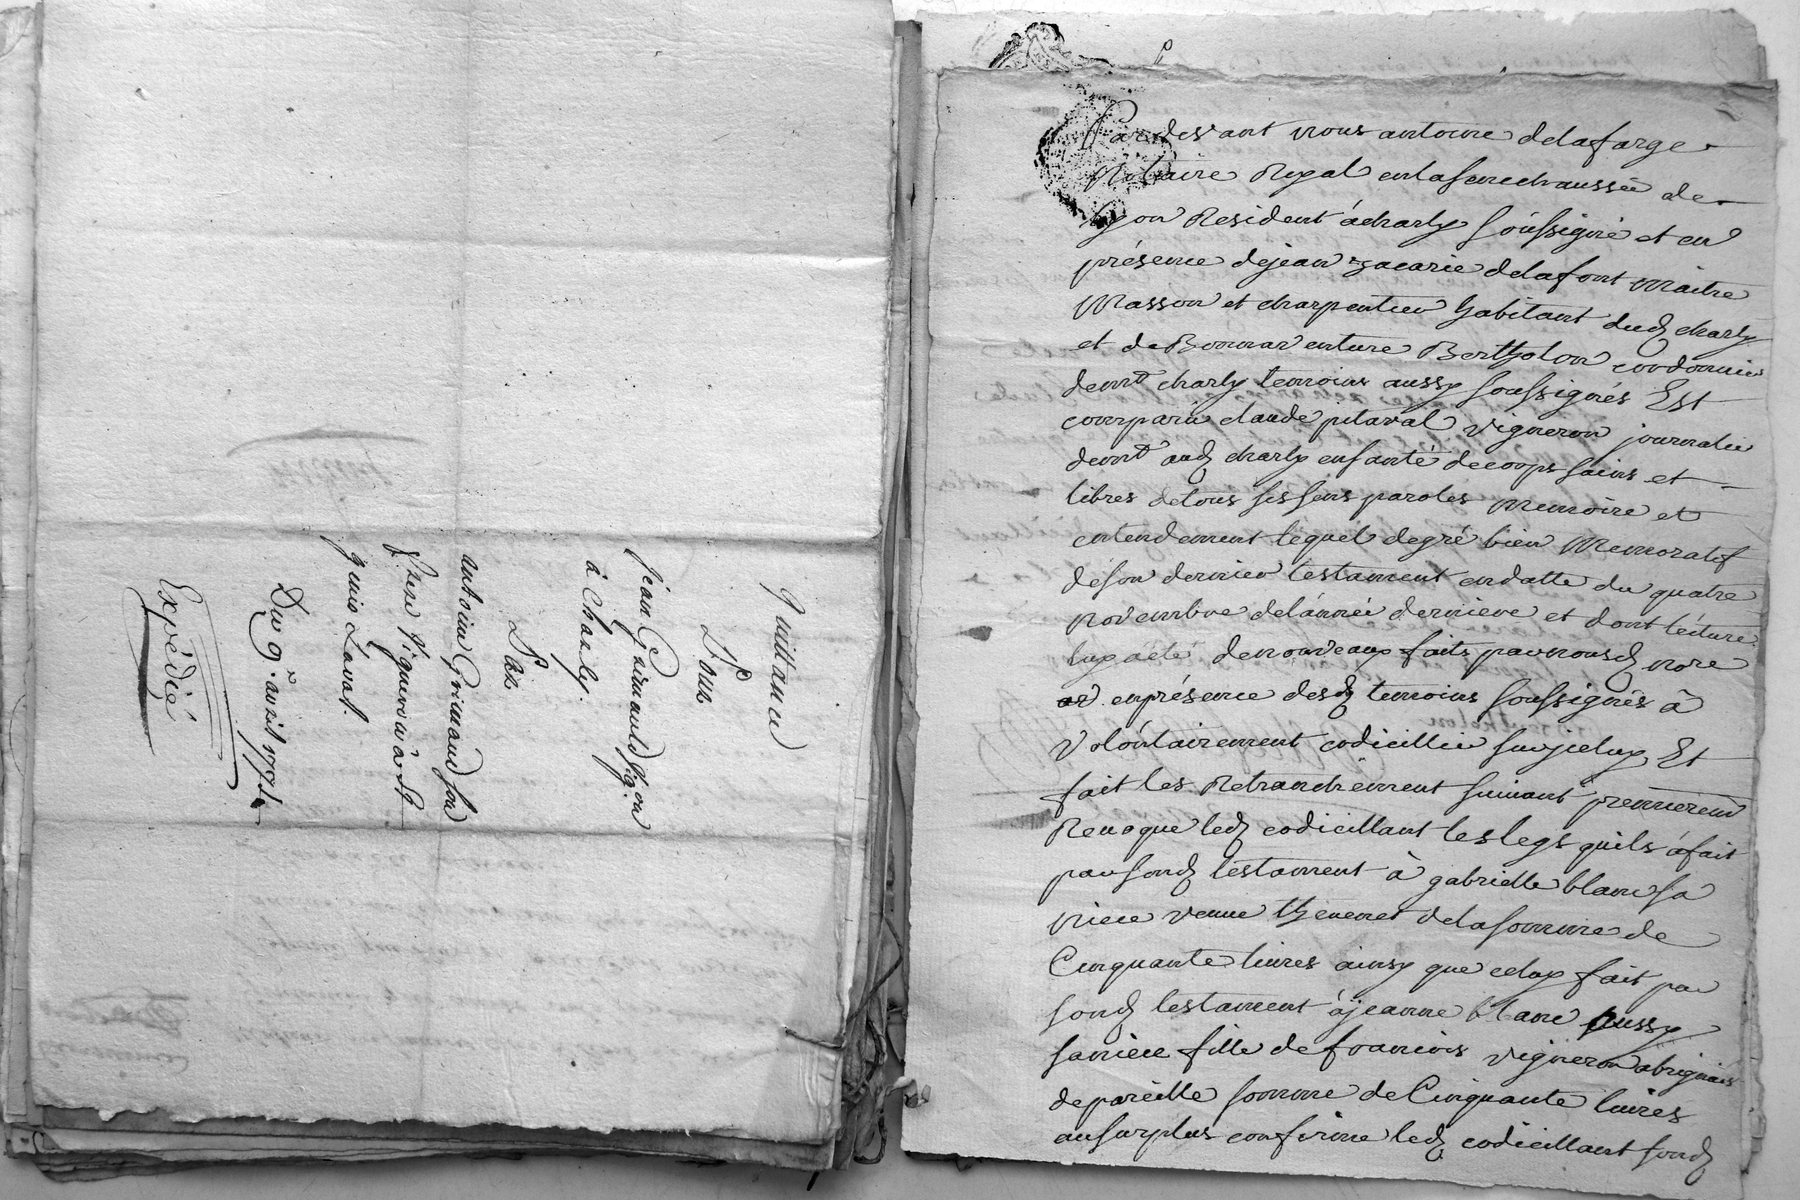 Quittance
Pour
Jean Grimauld Vigon
à Charly.
Par
antoine Grimaud son
frere Vigneron à
genis Laval.
Du 9e. avril 1771.
Expédié
Pardevant nous antoine delafarge
Notaire Royal enlasenechaussée de
Lyon Resident àcharly soussigné et en
présence dejean zacarie delafont maitre
Masson et charpentier habitant dud charly
et de Bonnaventure Bertholon cordonnier
demt charly temoins aussy soussignés Est
comparu claude pitaval vigneron journalier
demt aud charly ensanté decorps sains et
libres detous sessens paroles memoire et
entendement lequel degré bien Memoratif
deson dernier testament endatte du quatre
novembre delannée derniere et dont lécture
luy aété denouveaux faite parnousd nore
enprésence desd temoins soussignés à
volontairement codicillie surjceluy Et
fait les Retranchement suivant premieremt
Revoque led codicillant leslegs quils àfait
parsond testament à gabrielle blanc sa
niece veuve thevenet delasomme de
Cinquante livres ainsy que celuy fait par
sond testament àjeanne blanc aussy
saniece fille de francois vigneron abrignais
depareille somme deCinquante livres
ausurplus confirme led codicillant sond